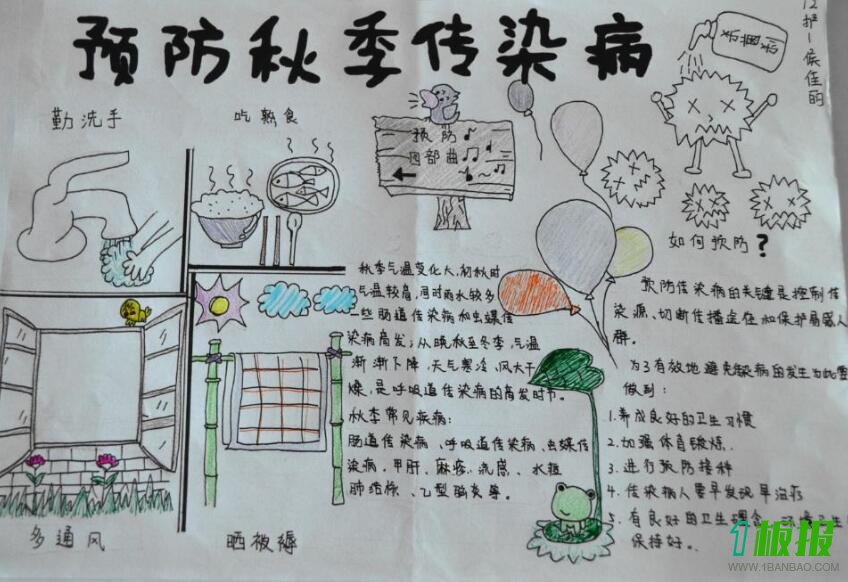 预防秋季传染病
12护1侯佳的
勤洗手
吃熟食
预防
四部曲
如何预防?
秋季气温变化大,初秋时
气温较高,同时雨水较多
一些肠道传染病和虫媒传
染病高发;从晚秋至冬季,气温
渐渐下降,天气寒冷,风大干
燥,是呼吸道传染病的高发时节。
秋季常见疾病:
肠道传染病、呼吸道传染病、虫媒传
染病,甲肝、麻疹、流感、水痘
肺结核、乙型脑炎等。
预防传染病的关键是控制传
染源、切断传播途径和保护易感人
群。
为了有效地避免染病的发生为此要
做到:
1.养成良好的卫生习惯
2.加强体育锻炼.
3.进行预防接种
4.传染病人要早发现早治疗
5.有良好的卫生理念,环境卫生
保持好.
多通风
晒被褥
1板报
WWW.1BANBAO.COM